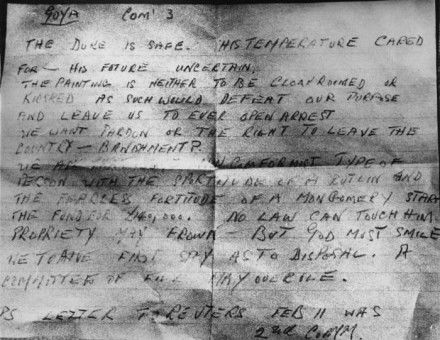 GOYA COM' 3
THE DUKE IS SAFE. HIS TEMPERATURE CARED
FOR - HIS FUTURE UNCERTAIN.
THE PAINTING IS NEITHER TO BE CLOAKROOMED OR
KIOSKED AS SUCH WOULD DEFEAT OUR PURPOSE
AND LEAVE US TO EVER OPEN ARREST
WE WANT PARDON OR THE RIGHT TO LEAVE THE
COUNTRY - BANISHMENT?
WE TYPE OF
WITH THE OF A BUTLIN AND
THE FEARLESS FORTITUDE OF A MONTGOMERY START
THE FUND FOR £140,000. NO LAW CAN TOUCH HIM.
PROPRIETY MAY FROWN - BUT GOD MUST SMILE
WE SAY AS TO DISPOSAL. A
COMMITTEE OF MAY OVERRULE.
PS LETTER T. REUTERS FEB 11 WAS
2ND COMM.